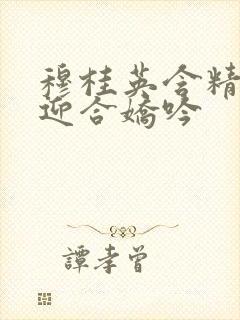 穆桂英含精
迎合嬌吟
譚孝曾